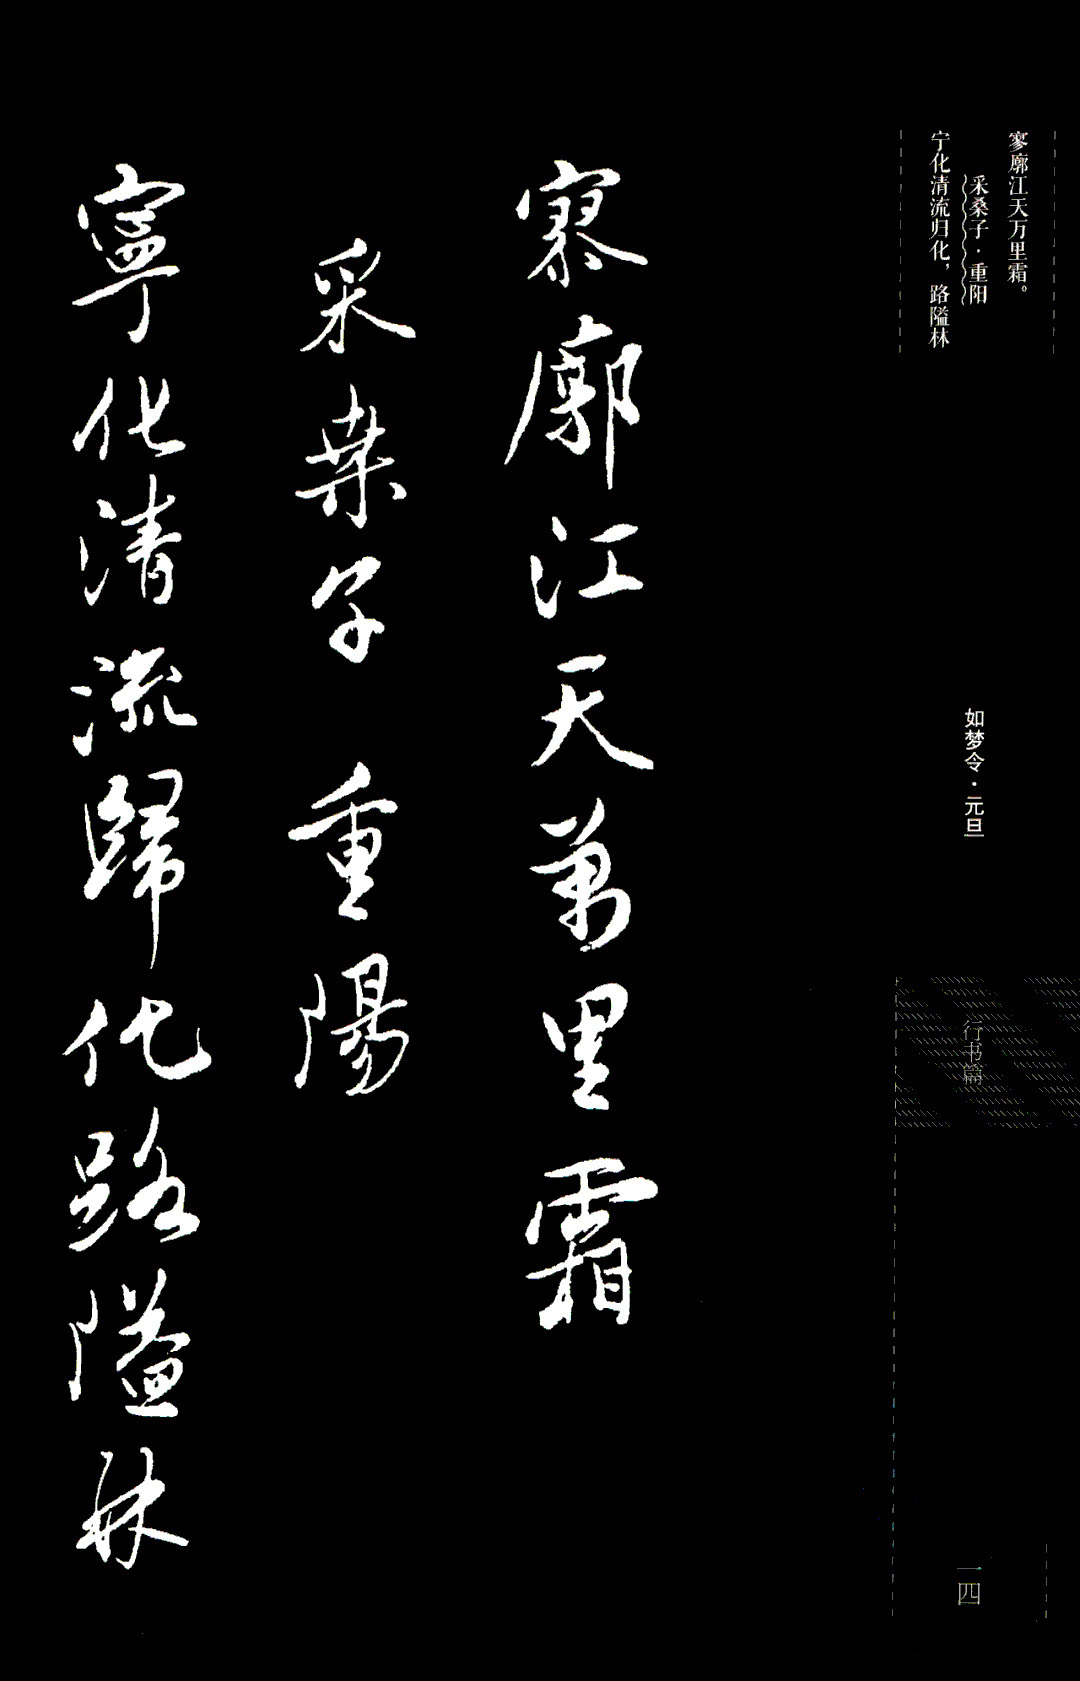 寥廓江天万里霜。
采桑子·重阳
宁化清流归化，路隘林
如梦令·元旦
行书篇
一四
寥廓江天萬里霜
采桑子 重陽
寧化清流歸化路隘林